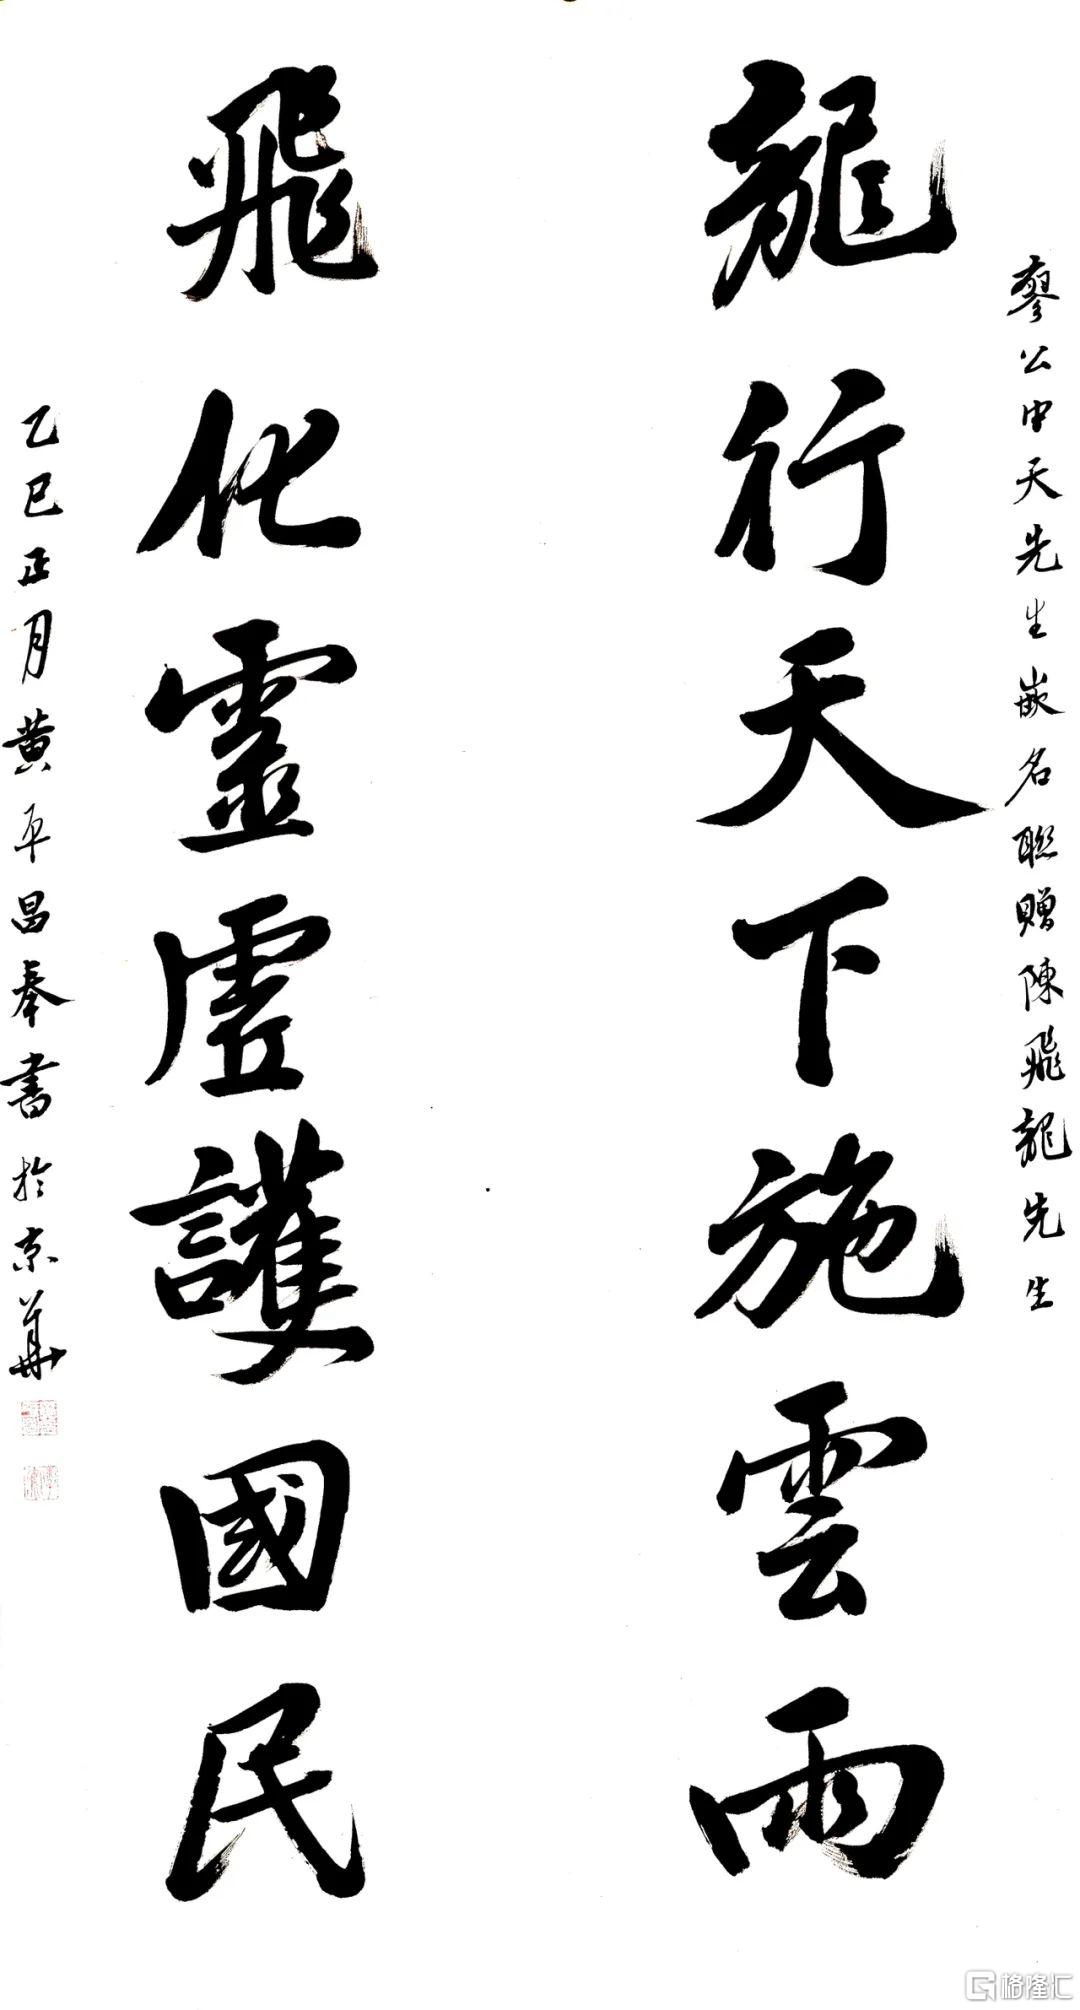 廖公中天先生嵌名聯贈陳飛龍先生
龍行天下施雲雨
飛化靈虛護國民
乙巳正月黄平昌奉書於京華
格隆汇